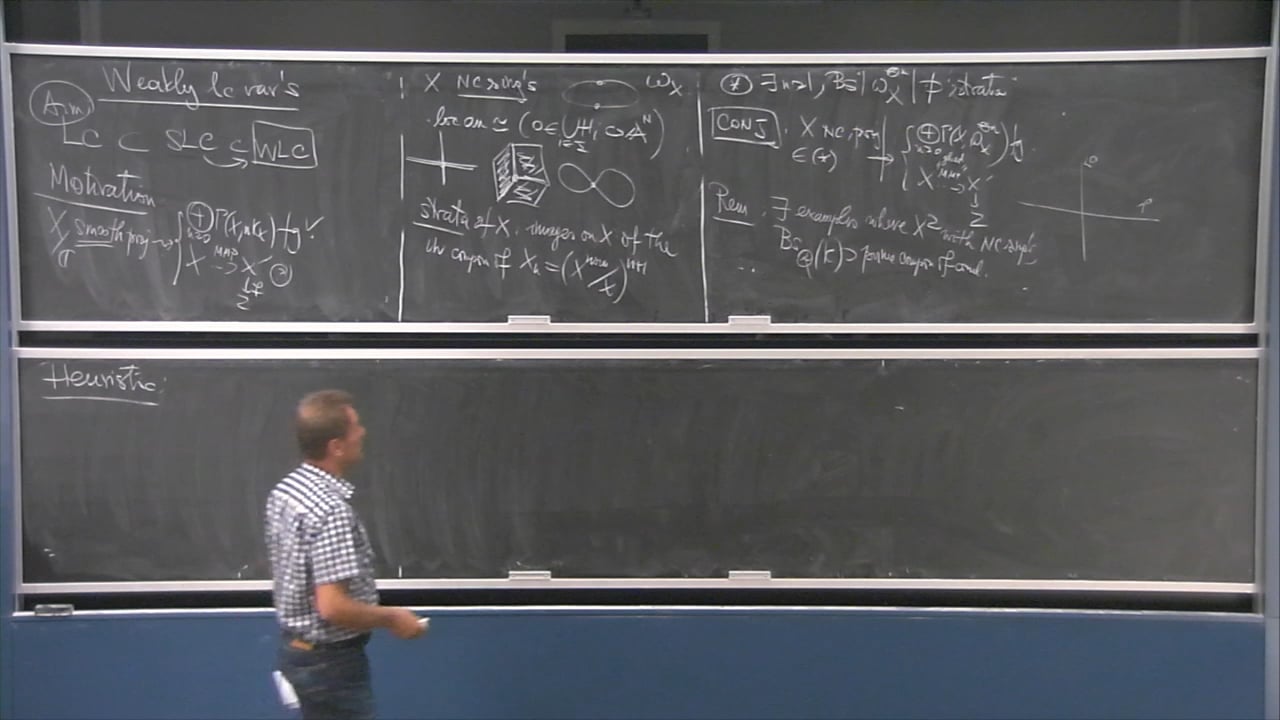 Weakly lc var's
Aim
LC ⊂ SLC ⊂ WLC
Motivation
X smooth proj → ⊕ Γ(X, nK_X) fg ✓
n≥0
X MMP ⇢ X'
X NC sing's ω_X
loc an ≅ (0 ∈ ∪ H_i ⊂ A^N)
i∈I
strata of X, images on X of the
irr compon of X_n = (X^norm/X)^{n+1}
(*) ∃ n≥1, Bs|ω_X^{⊗n}| ⊅ strata
CONJ. X NC, proj
∈ (*) → ⊕ Γ(X, ω_X^{⊗n}) fg.
n≥0
X MMP ⇢ X'
Rem. ∃ examples where X² with NC sing's
Bs (K) ⊃
0
Heuristic: